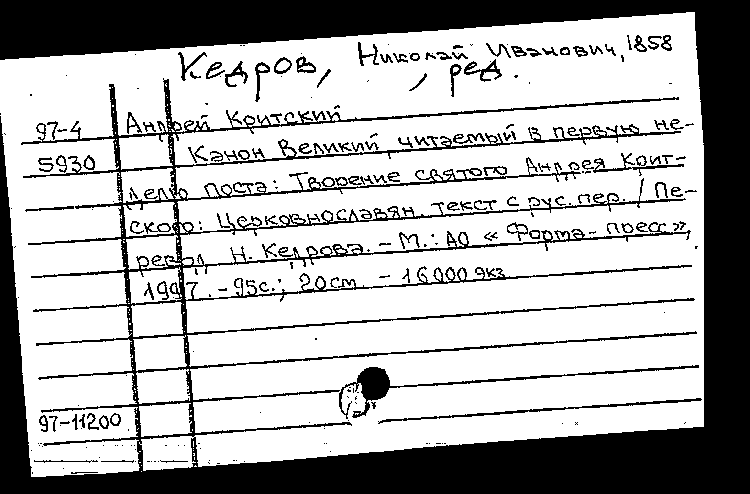 Кедров, Николай Иванович, 1858
, ред.
97-4 Андрей Критский
5930 Канон Великий, читаемый в первую не-
делю поста: Творение святого Андрея Крит-
ского: Церковнославян. текст с рус. пер. / Пе-
ревод Н. Кедрова. – М.: АО « Форта-пресс»,
1997. – 95с.; 20см – 16000 экз
97-11200